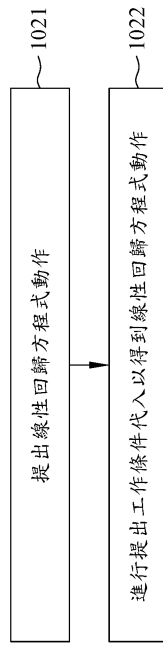 提出線性回歸方程式動作
1021
進行提出工作條件代入以得到線性回歸方程式動作
1022